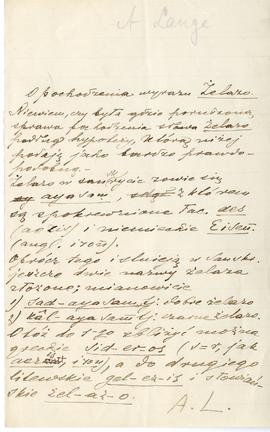 A Lange
O pochodzeniu wyrazu Żelazo.
Niewiem, czy była gdzie poruszona
sprawa pochodzenia słowa żelazo
podług hypotezy, którą niżej
podaję jako bardzo prawdo-
podobną.-
Żelazo w sanskrycie zowie się
ayasam, z którem
są spokrewnione łac. aes
i niemieckie Eisen
(angl. iron).
Oprócz tego istnieją w sansk.
jeszcze dwie nazwy żelaza
złożone; mianowicie
1) sad-ayasam tj. dobre żelazo
2) kâl-ayasam tj. czarne żelazo.
Otóż do 1-go zbliżyć można
greckie sid-er-os (s=r, jak
iron), a do drugiego
litewskie gel-ez-is i słowiań-
skie żel-az-o.
A. L.